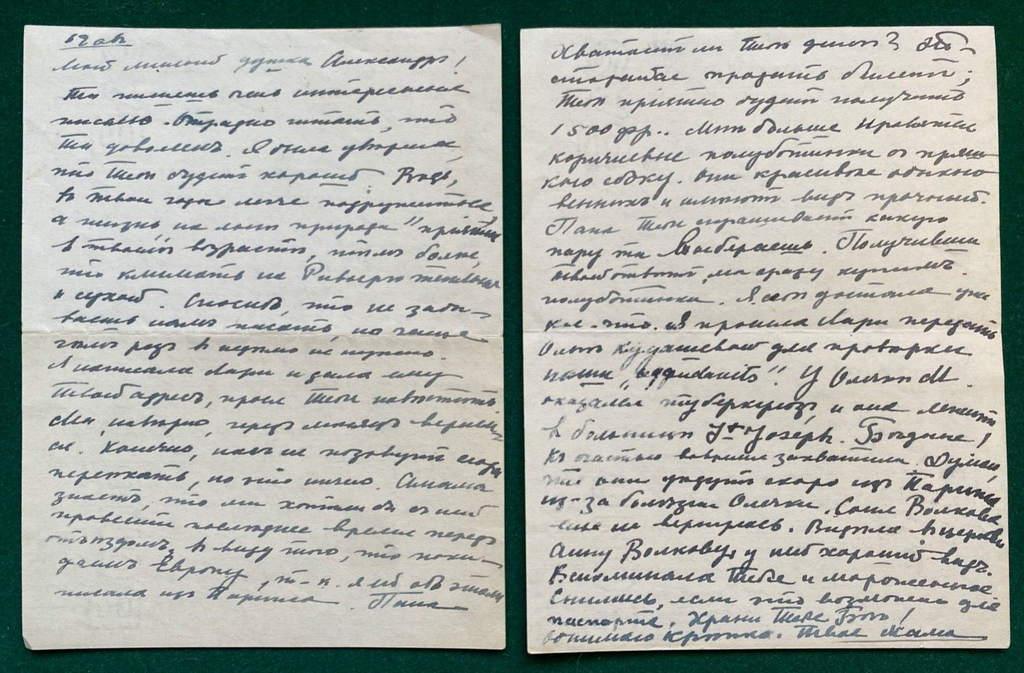 Мой милый душка Александръ!
Ты пишешь очень интересные
письма. Отрадно читать, что
ты доволенъ. Я была уверена,
что Тебе будетъ хорошо.
в Твои годы легче
а жизнь на лоне природы" приятна
в твоемъ возрасте, темъ более,
что климатъ на Ривьере
и сухой. Спасибо, что не забы-
ваешь намъ писать, но чаще
чемъ разъ в неделю не нужно.
Я написала Лари и дала ему
Твой адресъ, прося Тебя навестить.
Мы, наверно, черезъ месяцъ вернем-
ся. Конечно, насъ не позовутъ сюда
переехать, но это ничего.
знаетъ, что мы хотели бы с ней
провести последнее время передъ
отъездомъ, в виду того, что поки-
даемъ Европу, т-к. я ей объ этомъ
писала изъ Парижа. Папа
Хватаетъ ли Тебе денегъ?
старайся продать билеты;
Тебе приятно будетъ получить
1500 фр.. Мне больше нравятся
коричневые полуботинки
кого сбоку. Они красивые
и имеютъ видъ прочный.
Папа Тебя спрашиваетъ какую
пару ты выбираешь. Получивши
Твой ответъ, мы сразу купимъ
полуботинки. Я достала уже
кое-что. Я просила Лари передать
Ольге Кудашевой для проверки
наши "affidavits". У Олечки М.
оказался туберкулезъ, и она лежитъ
в больнице St Joseph. Бедные!
Къ счастью вовремя захватили. Думаю,
что они уедутъ скоро изъ Парижа
из-за болезни Олечки. Соня Волкова
еще не вернулась. Видела в церкви
Анну Волкову, у ней хороший видъ.
Вспоминала Тебя и мороженное
Снимись, если это возможно для
паспорта. Храни Тебя Богъ!
Обнимаю крепко. Твоя Мама